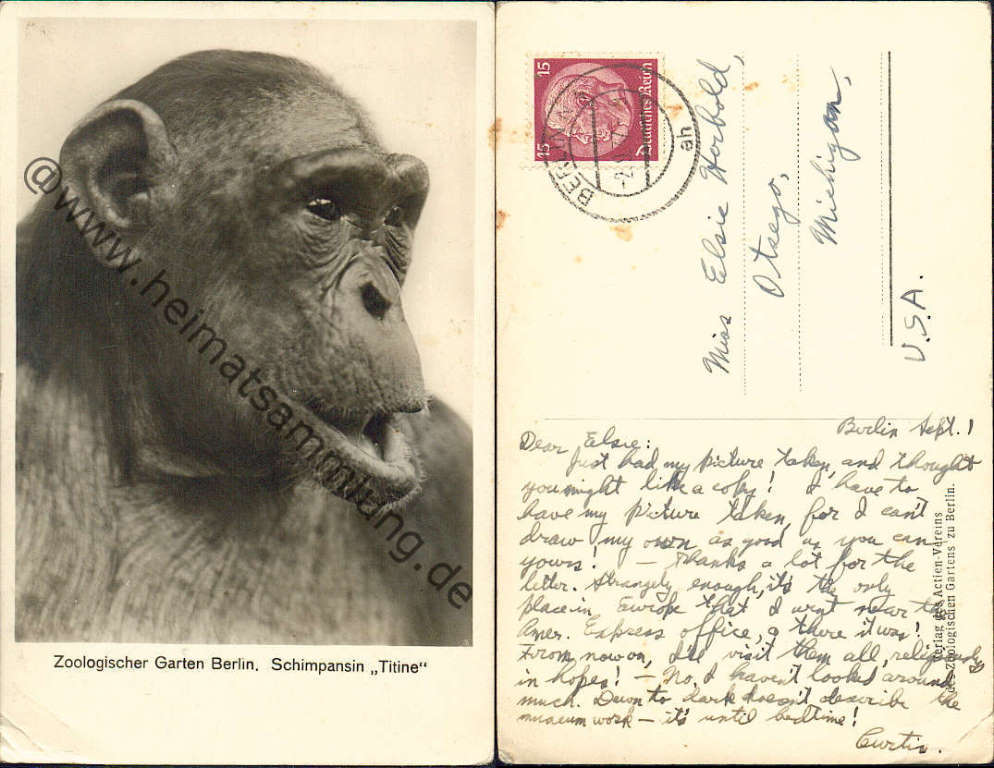 @www.heimatsammlung.de
Zoologischer Garten Berlin. Schimpansin „Titine“
15
15
Deutsches Reich
BERLIN
ah
Miss Elsie Horbold,
Otsego,
Michigan,
U.S.A.
Berlin Sept. 1
Dear Elsie:
Just had my picture taken, and thought
you might like a copy! I have to
have my picture taken, for I can't
draw my own as good as you can
yours! — Thanks a lot for the
letter. Strangely enough, it's the only
place in Europe that I went near the
Amer. Express office, & there it was!
From now on, I'll visit them all, religiously
in hopes! — No, I haven't looked around
much. Dawn to dark doesn't describe the
museum work — it's until bedtime!
Curtis.
Verlag des Actien-Vereins
des Zoologischen Gartens zu Berlin.